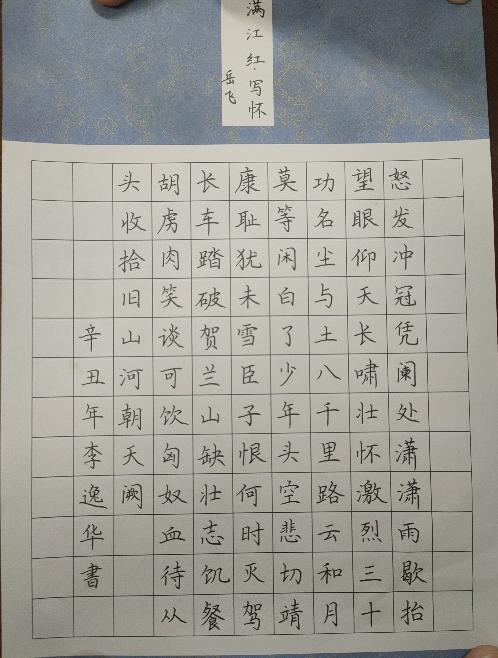 满江红·写怀
岳飞
怒发冲冠凭阑处潇潇雨歇抬
望眼仰天长啸壮怀激烈三十
功名尘与土八千里路云和月
莫等闲白了少年头空悲切靖
康耻犹未雪臣子恨何时灭驾
长车踏破贺兰山缺壮志饥餐
胡虏肉笑谈可饮匈奴血待从
头收拾旧山河朝天阙
辛丑年李逸华書